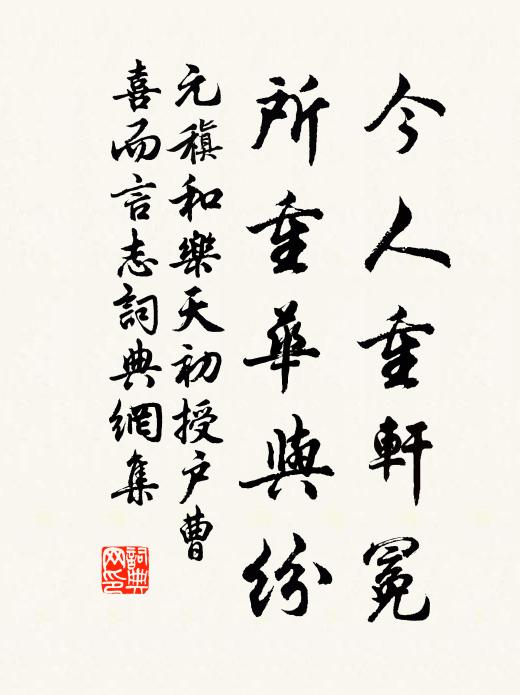 今人重軒冕
所重華與紛
元稹和樂天初授户曹
喜而言志詞典網集
詞典網印